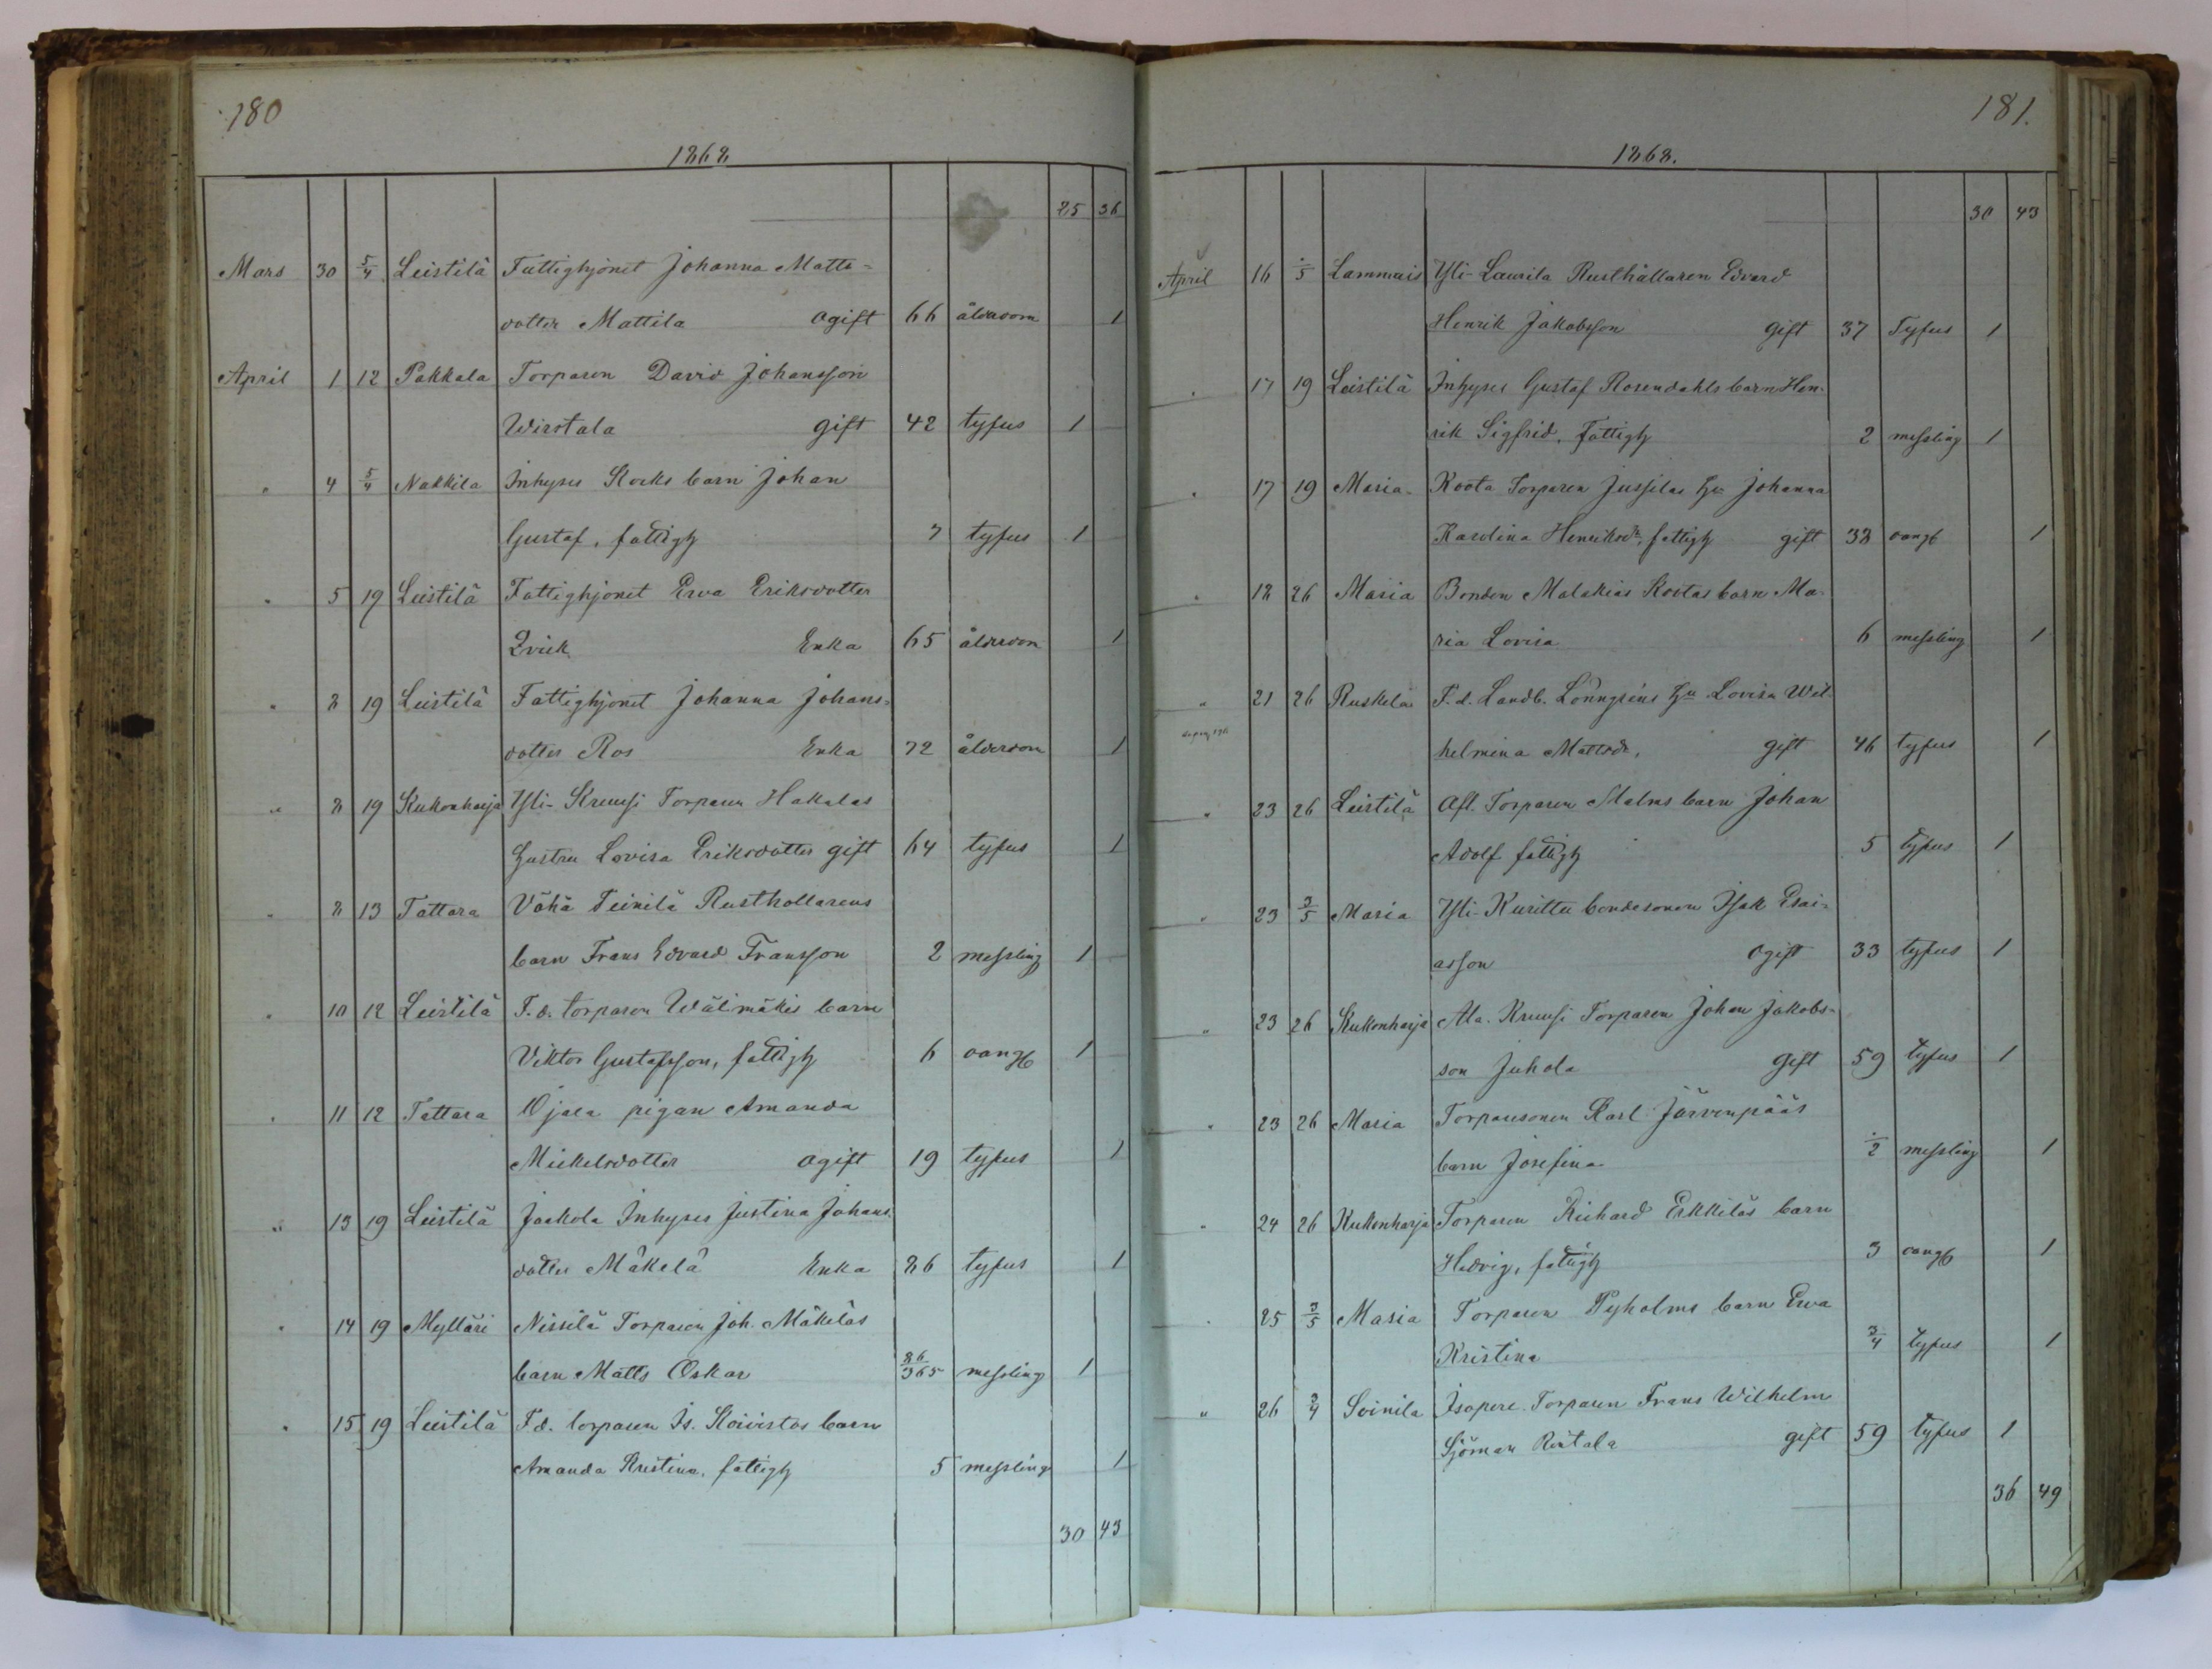 180
1868
25 36
Mars 30 5/4 Leistilä Fattighjonet Johanna Matts-
dotter Mattila Ogift 66 ålderdom 1
April 1 12 Pakkala Torparen David Johansson
Wirotala gift 42 typus 1
" 4 5/4 Nakkila Inhyses Stocks barn Johan
Gustaf, fattigh 7 typus 1
" 5 19 Leistilä Fattighjonet Eva Eriksdotter
Qvick Enka 65 ålderdom 1
" 8 19 Leistilä Fattighjonet Johanna Johans-
dotter Ros Enka 72 ålderdom 1
" 8 19 Kukonharja Yli-Kruusi Torparen Hakalas
hustru Lovisa Eriksdotter gift 64 typus 1
" 8 13 Tattara Vähä Teinilä Rusthollarens
barn Frans Edvard Fransson 2 messling 1
" 10 12 Leistilä F.d. torparen Wälimäkis barn
Viktor Gustafsson, fattigh 6 oangb 1
" 11 12 Tattara Ojala pigan Amanda
Mickelsdotter ogift 19 typus 1
" 13 19 Leistilä Jaakola Inhyses Justina Johans
dotter Mäkelä Enka 86 typus 1
" 14 19 Mylläri Nissilä Torparen Joh. Mäkeläs
barn Matts Oskar 86/365 messling 1
" 15 19 Leistilä F.d. torparen Is. Koivistos barn
Amanda Kristina, fattigh 5 messling 1
30 43
181.
1868.
30 43
April 16 ·/5 Lammais Yli-Laurila Rusthållaren Edvard
Henrik Jakobsson gift 37 Typus 1
" 17 19 Leistilä Inhyses Gustaf Rosendahls barn Hen-
rik Sigfrid, fattigh 2 messling 1
" 17 19 Maria Koota Torparen Jussilas hu Johanna
Karolina Henriksdr, fattigh gift 38 oangb 1
" 18 26 Maria Bonden Malakias Kootas barn Ma-
ria Lovisa 6 messling 1
" 21 26 Ruskela F.d. Landb. Lönngrens hu Lovisa Wil-
helmina Mattsdr, gift 46 typus 1
" 23 26 Leistilä Afl. Torparen Malms barn Johan
Adolf fattigh 5 typus 1
" 23 3/5 Maria Yli-Kurittu bondesonen Isak Esai-
asson Ogift 33 typus 1
" 23 26 Kukonharja Ala-Kruusi Torparen Johan Jakobs-
son Juhola Gift 59 typus 1
" 23 26 Maria Torparesonen Karl Järvenpääs
barn Josefina ·/2 messling 1
" 24 26 Kukonharja Torparen Richard Erkkiläs barn
Hedvig, fattigh 3 oangb 1
" 25 3/5 Maria Torparen Nyholms barn Eva
Kristina 3/4 typus 1
" 26 3/4 Soinila Isopere Torparen Frans Wilhelm
Sjöman Rintala gift 59 typus 1
36 49